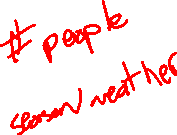 # people
season/weather